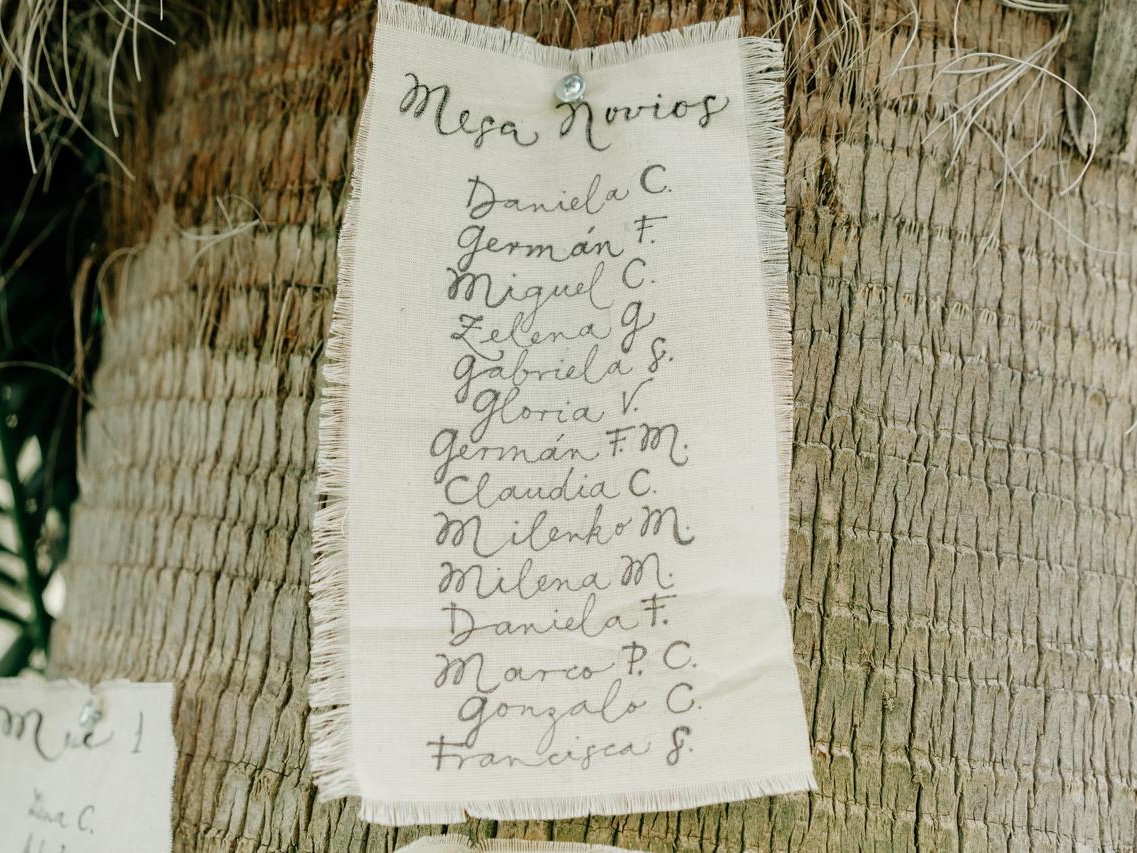 Mesa Novios
Daniela C.
Germán F.
Miguel C.
Zelena G
Gabriela S.
Gloria V.
Germán F. M.
Claudia C.
Milenko M.
Milena M.
Daniela F.
Marco P. C.
Gonzalo C.
Francisca S.
1
C.